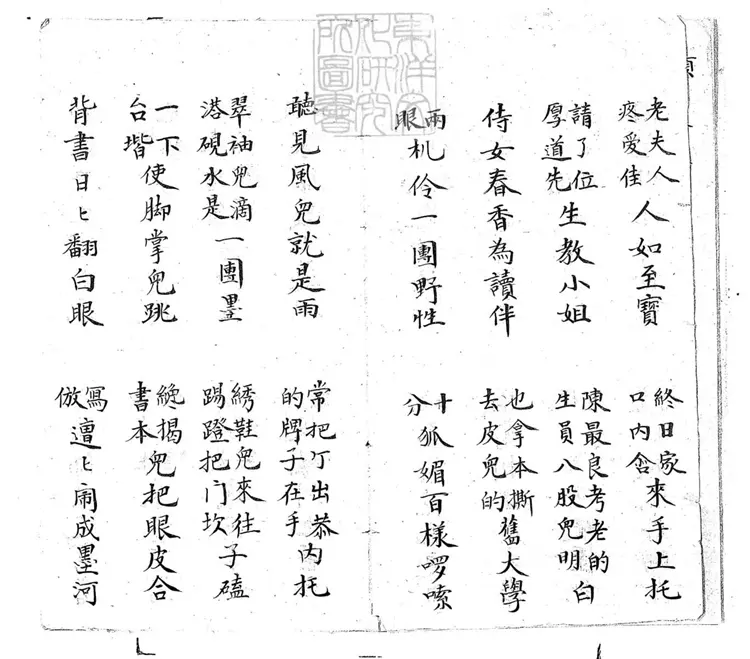 老夫人疼愛佳人如至寶
終日家口內含來手上托
請了位厚道先生教小姐
陳最良考老的生員八股兒明白
侍女春香為讀伴
也拿本撕去皮兒的舊大學
兩眼机伶一團野性
十分狐媚百樣啰嗦
聽見風兒就是雨
常把个出恭的牌子在手內托
翠袖兒滴落硯水是一團墨
綉鞋兒來往踢蹬把门坎子磕
一下台堦使脚掌兒跳
纔揭書本兒把眼皮合
背書日匕翻白眼
寫倣遭匕闹成墨河
東洋文化研究所圖書